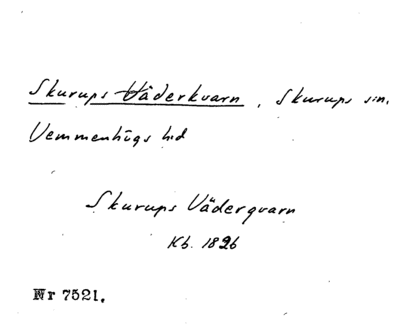 Skurups Väderkvarn, Skurups sn.
Vemmenhögs hd
Skurups Väderqvarn
Kb. 1826
Nr 7521.